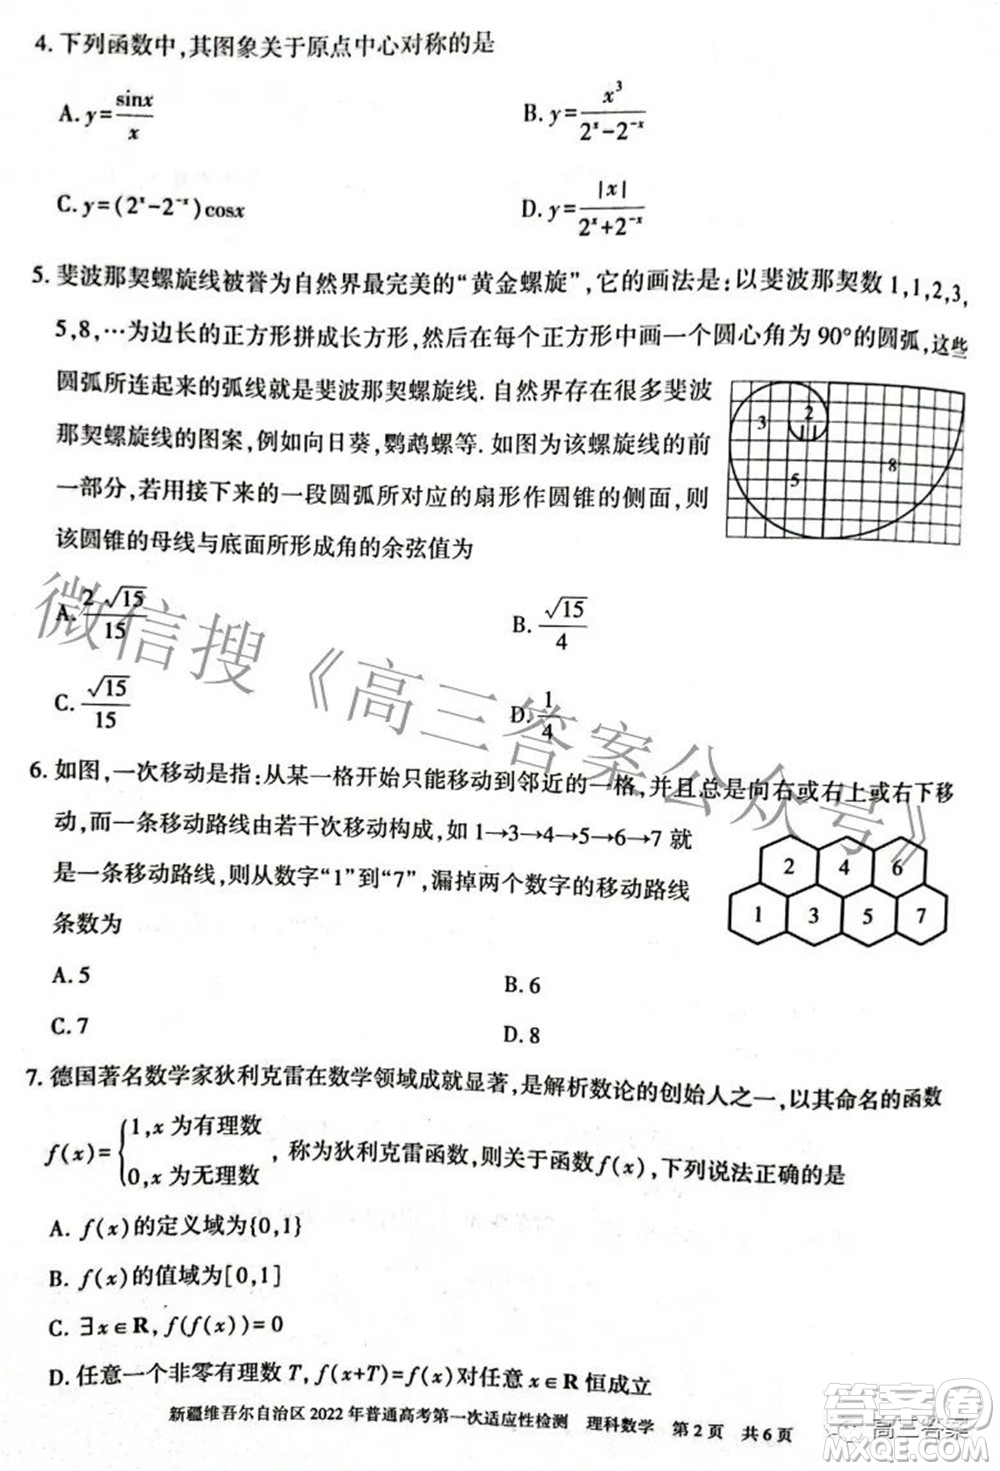 4. 下列函数中,其图象关于原点中心对称的是
A. y=sinx/x
B. y=x³/(2ˣ-2⁻ˣ)
C. y=(2ˣ-2⁻ˣ)cosx
D. y=|x|/(2ˣ+2⁻ˣ)
5. 斐波那契螺旋线被誉为自然界最完美的“黄金螺旋”,它的画法是:以斐波那契数1,1,2,3,
5,8,…为边长的正方形拼成长方形,然后在每个正方形中画一个圆心角为90°的圆弧,这些
圆弧所连起来的弧线就是斐波那契螺旋线. 自然界存在很多斐波
那契螺旋线的图案,例如向日葵,鹦鹉螺等. 如图为该螺旋线的前
一部分,若用接下来的一段圆弧所对应的扇形作圆锥的侧面,则
该圆锥的母线与底面所形成角的余弦值为
3 2
1 1
5 8
A. 2√15/15
B. √15/4
C. √15/15
D. 1/4
6. 如图,一次移动是指:从某一格开始只能移动到邻近的一格,并且总是向右或右上或右下移
动,而一条移动路线由若干次移动构成,如1→3→4→5→6→7就
是一条移动路线,则从数字“1”到“7”,漏掉两个数字的移动路线
条数为
2 4 6
1 3 5 7
A. 5
B. 6
C. 7
D. 8
7. 德国著名数学家狄利克雷在数学领域成就显著,是解析数论的创始人之一,以其命名的函数
f(x)={1,x为有理数
0,x为无理数
,称为狄利克雷函数,则关于函数f(x),下列说法正确的是
A. f(x)的定义域为{0,1}
B. f(x)的值域为[0,1]
C. ∃x∈R,f(f(x))=0
D. 任意一个非零有理数T,f(x+T)=f(x)对任意x∈R恒成立
新疆维吾尔自治区2022年普通高考第一次适应性检测 理科数学 第2页 共6页
微信搜《高三答案公众号》
高三答案
答案圈
MXQE.COM